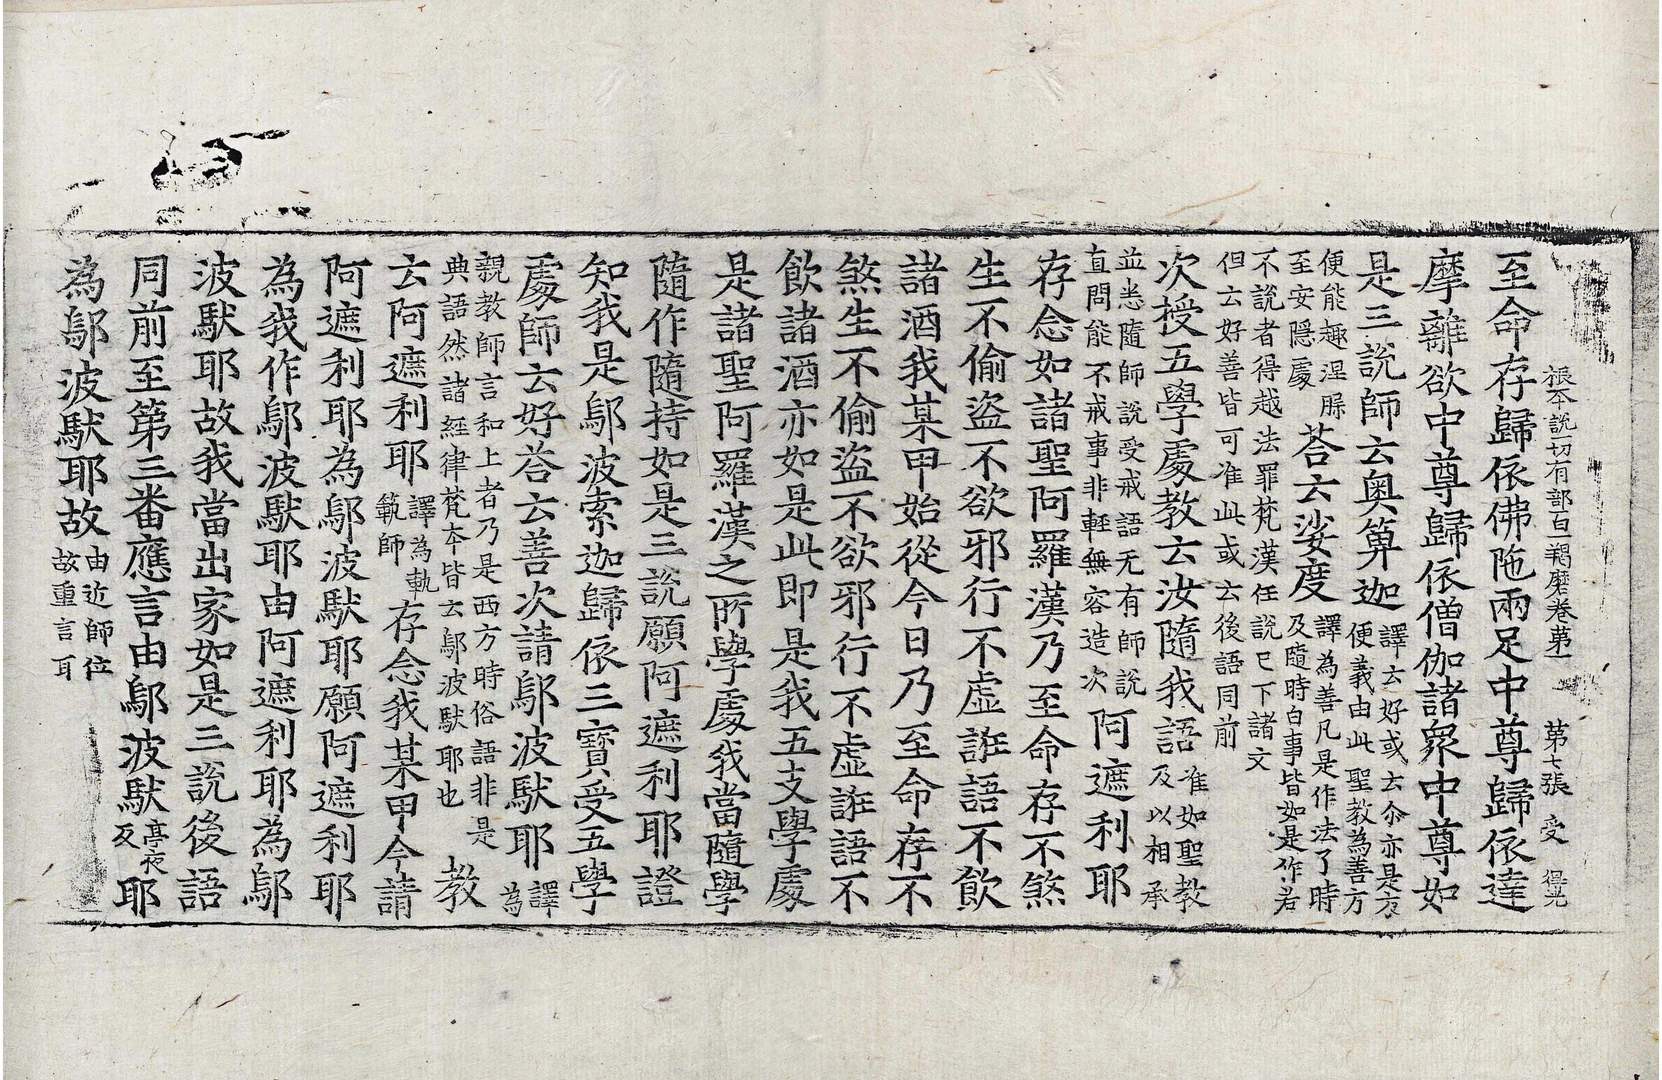 根本說一切有部百一羯磨卷苐一 苐七張 受 得光
至命存歸依佛陁兩足中尊歸依達
摩離欲中尊歸依僧伽諸衆中尊如
是三說師云奧箄迦譯云好或云尒亦是方便義由此聖教為善方
便能趣涅槃至安隱處荅云娑度譯為善凡是作法了時及隨時白事皆如是作若
不說者得越法罪梵漢任說已下諸文但云好善皆可准此或云後語同前
次授五學處教云汝隨我語准如聖教及以相承
並悉隨師說受戒語无有師說直問能不戒事非輕無容造次阿遮利耶
存念如諸聖阿羅漢乃至命存不煞
生不偷盜不欲邪行不虛誑語不飲
諸酒我某甲始從今日乃至命存不
煞生不偷盜不欲邪行不虛誑語不
飲諸酒亦如是此即是我五支學處
是諸聖阿羅漢之所學處我當隨學
隨作隨持如是三說願阿遮利耶證
知我是鄔波索迦歸依三寶受五學
處師云好荅云善次請鄔波馱耶譯為
親教師言和上者乃是西方時俗語非是典語然諸經律梵本皆云鄔波馱耶也教
云阿遮利耶譯為軌範師存念我某甲今請
阿遮利耶為鄔波馱耶願阿遮利耶
為我作鄔波馱耶由阿遮利耶為鄔
波馱耶故我當出家如是三說後語
同前至第三番應言由鄔波馱亭夜反耶
為鄔波馱耶故由近師位故重言耳